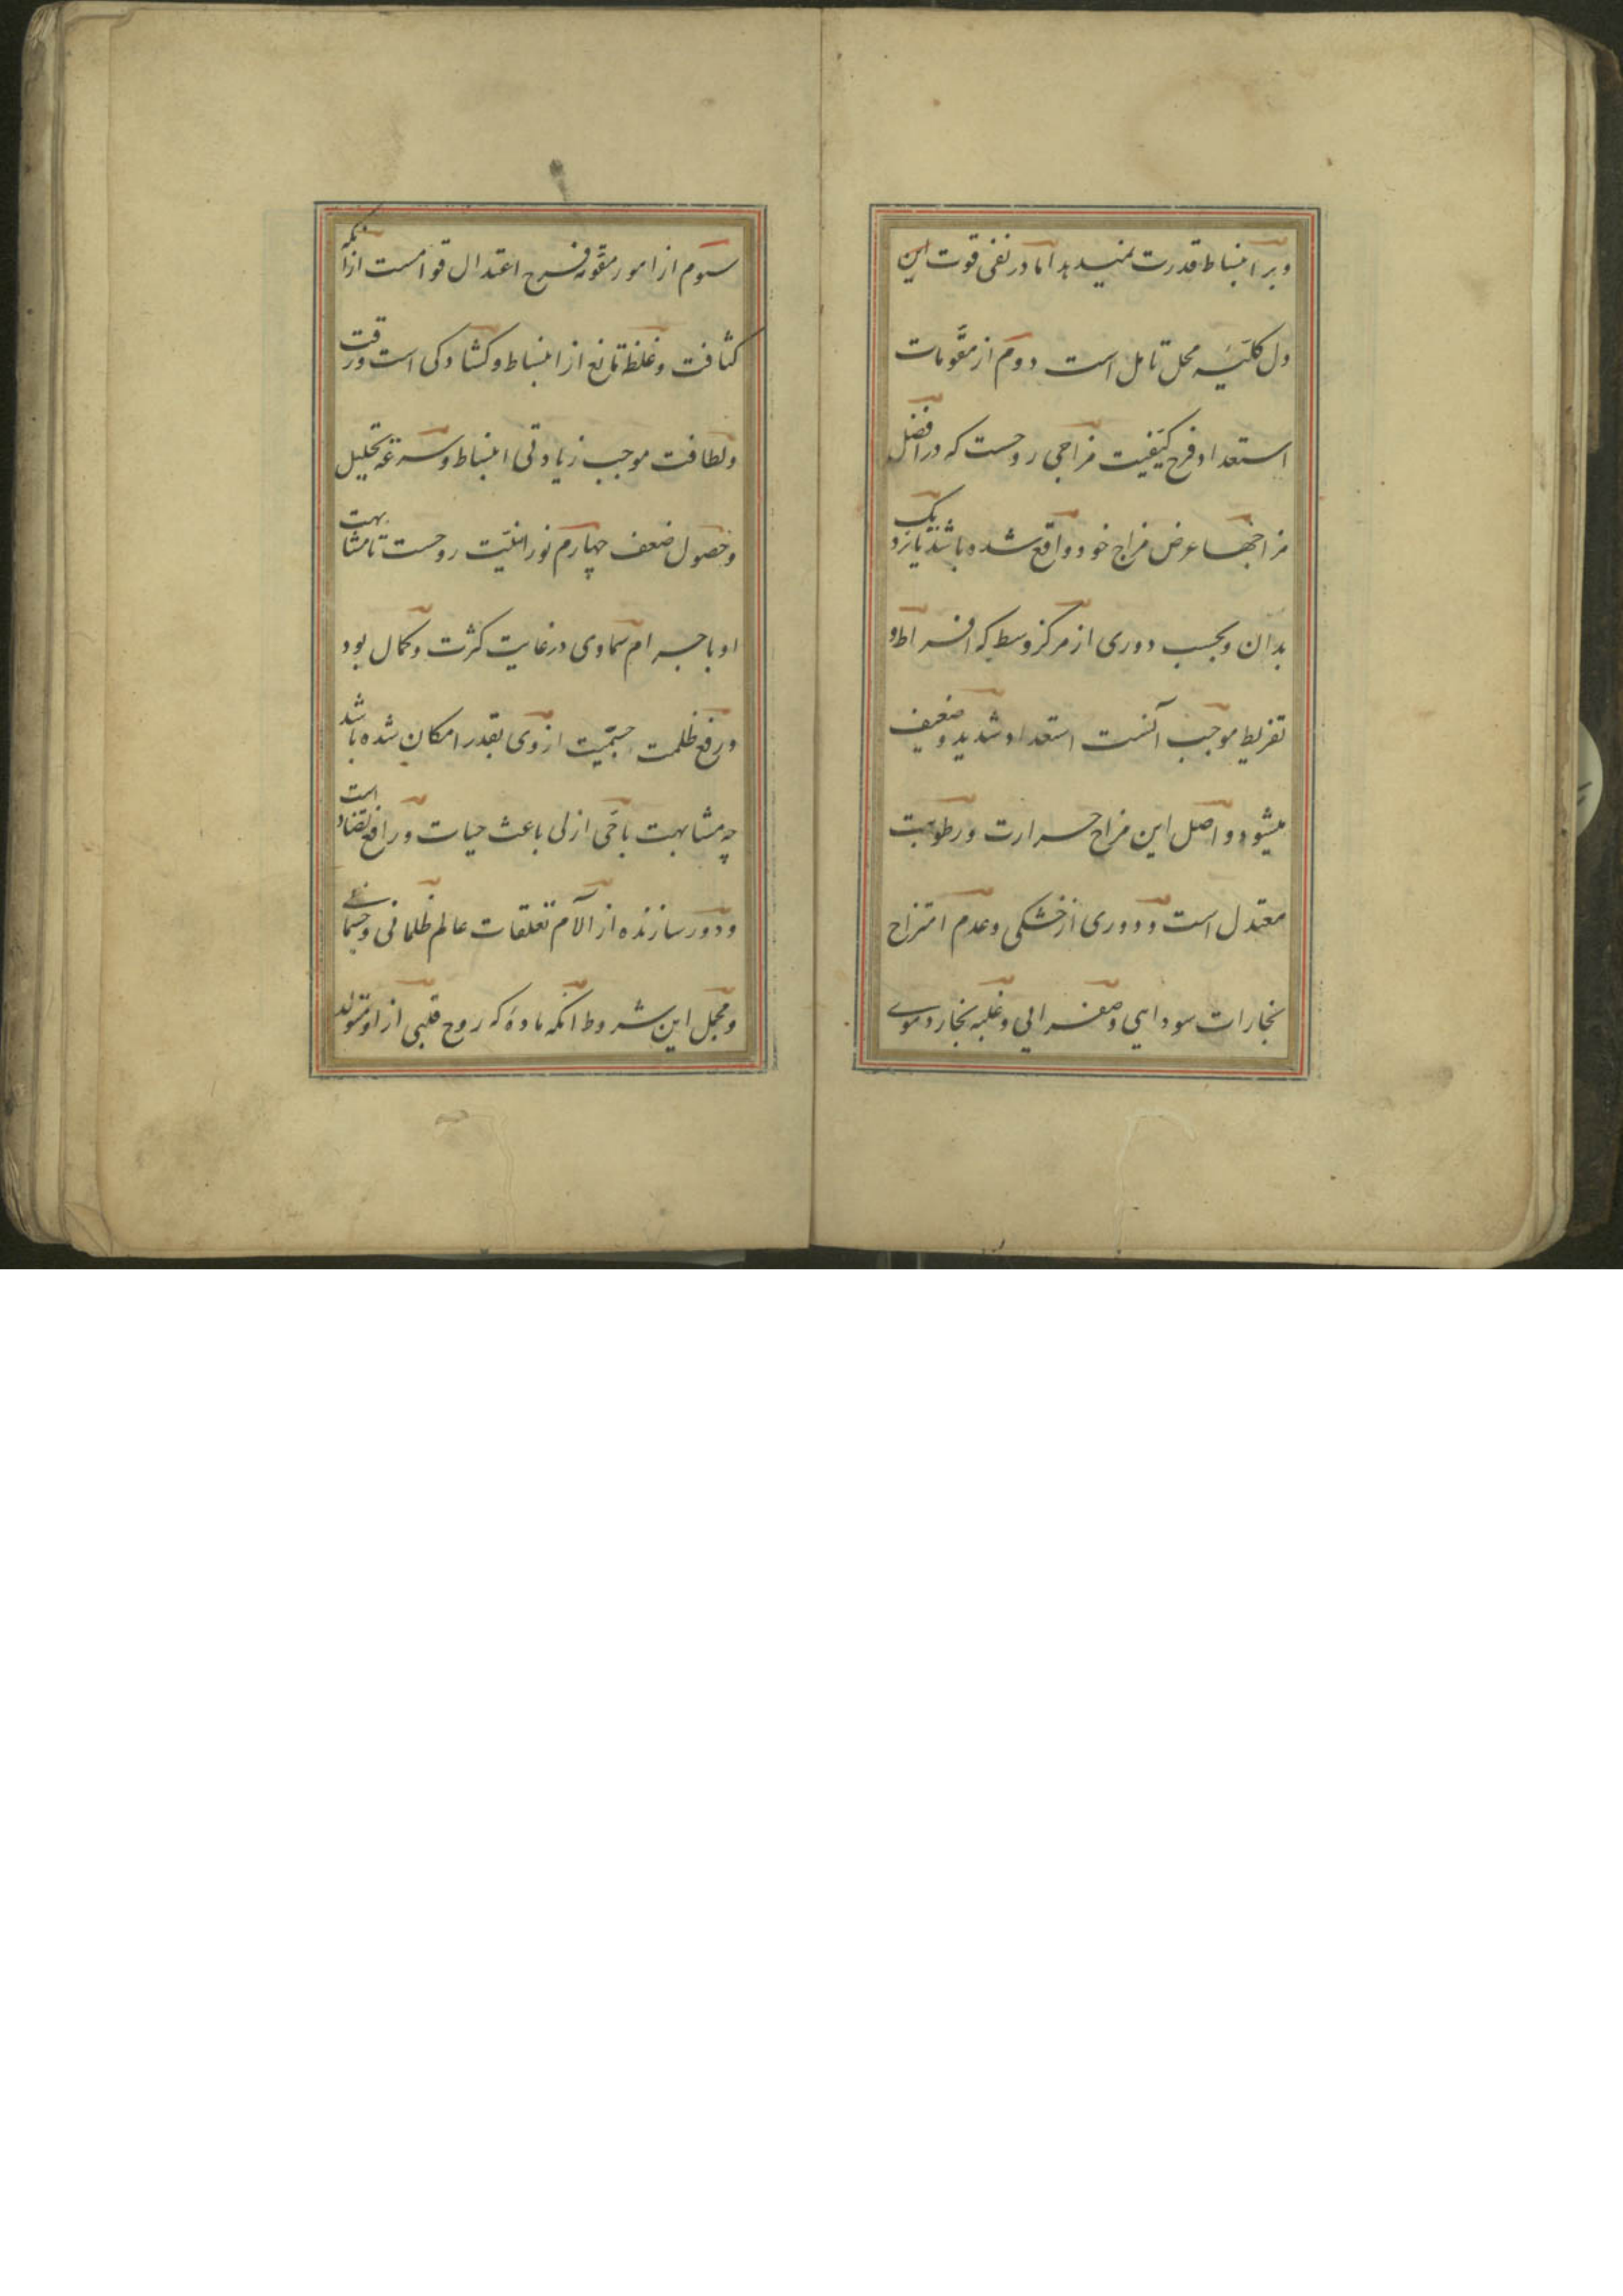 و بر انبساط قدرت نمیدهد اما در نفی قوت این
دل کلیّه محل تامل است دوم از مقوّمات
استعداد فرح کیفیت مزاجی روحست که در افضل
مزاجها عرض مزاج خود واقع شده باشد یا نزدیک
بدان و بحسب دوری از مرکز وسط که افراط و
تفریط موجب آنست استعداد شدید و ضعیف
میشود و اصل این مزاج حرارت و رطوبت
معتدل است و دوری از خشکی و عدم امتزاج
بخارات سودایی و صفرایی و غلبه بخار دموی
سوم از امور مقوّمه فرح اعتدال قوامست از آنکه
کثافت و غلظ مانع از انبساط و کشادکی است و رقت
و لطافت موجب زیادتی انبساط و سرعة تحلیل
و حصول ضعف چهارم نورانیّت روحست تا مشابهت
او با جرام سماوی در غایت کثرت و کمال بود
و رفع ظلمت جسمیّت از وی بقدر امکان شده باشد
چه مشابهت با حّی ازلی باعث حیات و رافع تضاد است
و دور سازنده از آلام تعلقات عالم ظلمانی و جسمانی
و مجمل این شروط انکه مادهٔ که روح قلبی از او متولد